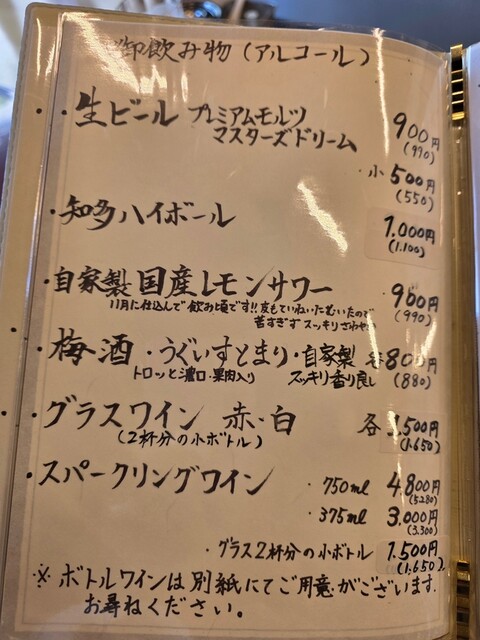 御飲み物(アルコール)
・生ビール プレミアムモルツ 900円
マスターズドリーム (990)
・小 500円
(550)
・知多ハイボール 1,000円
(1,100)
・自家製国産レモンサワー 900円
11月に仕込んで飲み頃です!!皮もていねいにむいたので (990)
苦すぎず スッキリさわやか
・梅酒・うぐいすとまり・自家製 各800円
トロッと濃口・果肉入り スッキリ香り良し (880)
・グラスワイン 赤・白 各1,500円
(2杯分の小ボトル) (1,650)
・スパークリングワイン ・750ml 4,800円
(5,280)
・375ml 3,000円
(3,300)
・グラス2杯分の小ボトル 1,500円
(1,650)
・※ ボトルワインは別紙にてご用意がございます。
お尋ねください。